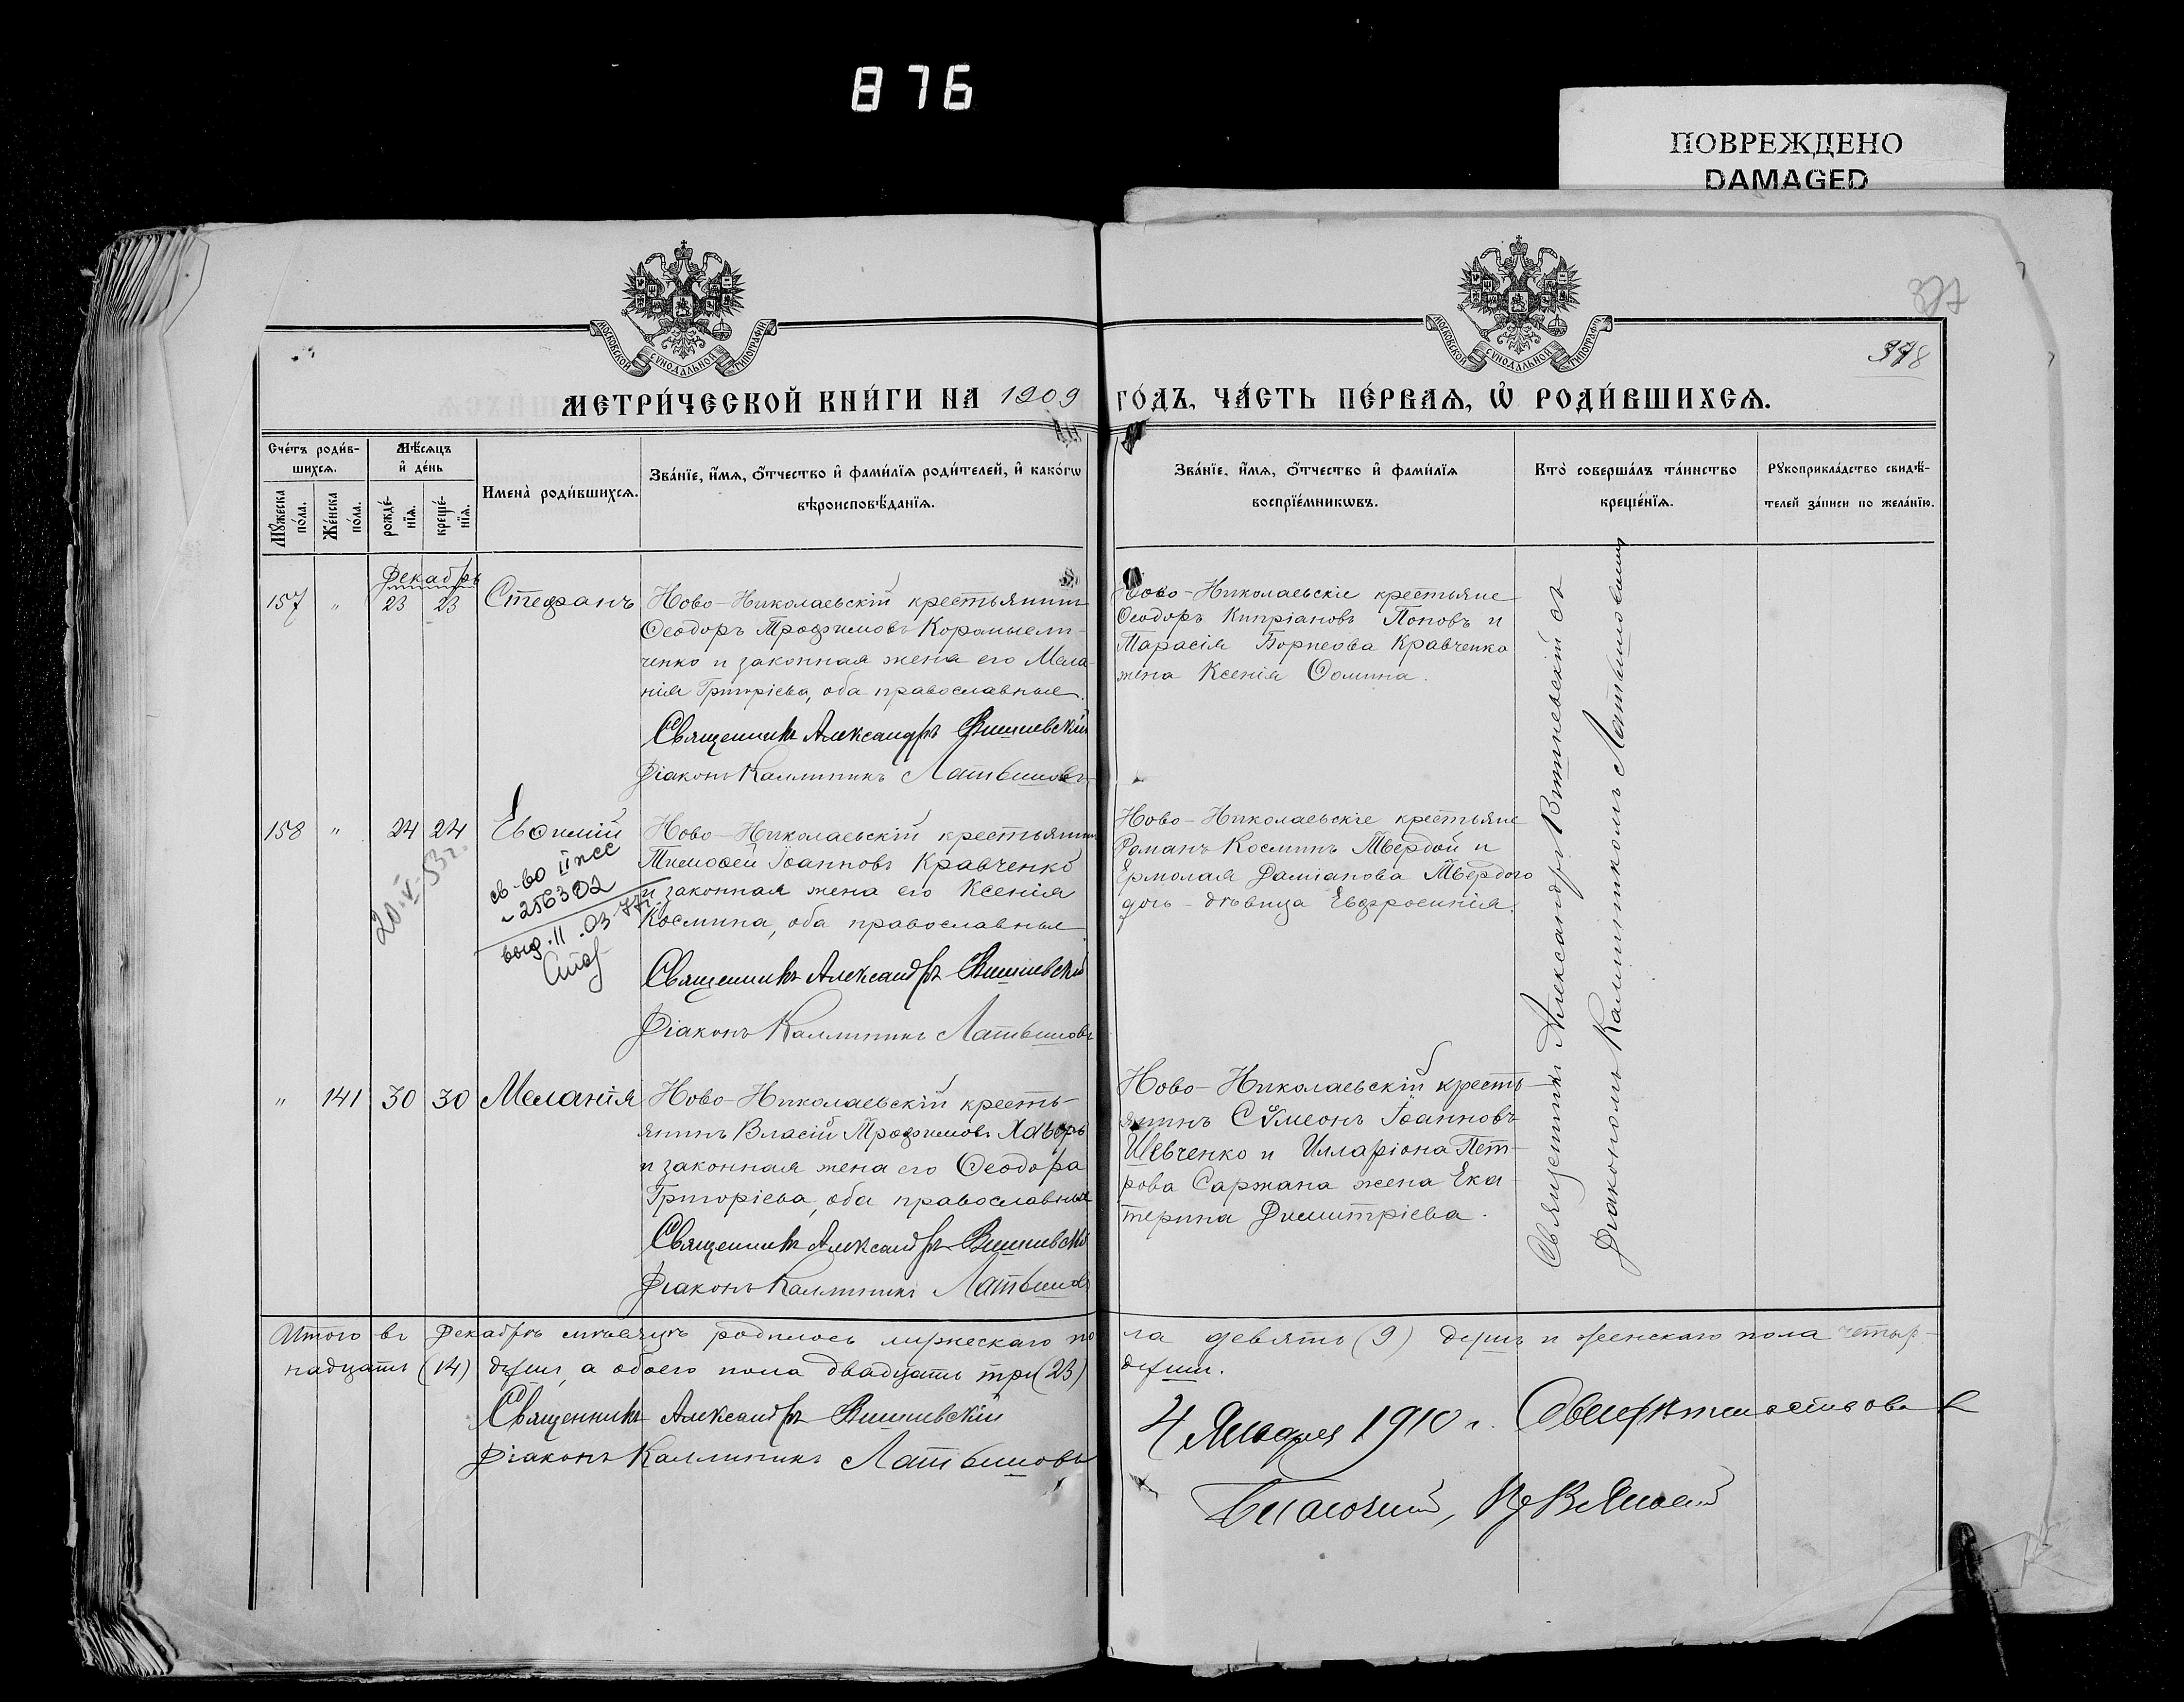 876
ПОВРЕЖДЕНО
DAMAGED
МОСКОВСКОЙ СѴНОДАЛЬНОЙ ТИПОГРАФІИ
МОСКОВСКОЙ СѴНОДАЛЬНОЙ ТИПОГРАФІИ
377
378
МЕТРИ́ЧЕСКОЙ КНИ́ГИ НА 1909 ГО́ДЪ, ЧА́СТЬ ПЕ́РВАЯ, Ѡ҆ РОДИ́ВШИХСЯ.
Сче́тъ роди́в-
шихся.
Мꙋ́жеска по́ла.
Же́нска по́ла.
Мѣ́сяцъ
и҆ де́нь
рожде́-
нїя.
креще́-
нїя.
Имена̀ роди́вшихся.
Зва́нїе, и҆́мя, ѻ҆́тчество и҆ фами́лїя роди́телей, и҆ како́гѡ
вѣроисповѣ́данїя.
Зва́нїе, и҆́мя, ѻ҆́тчество и҆ фами́лїя
воспрїе́мникѡвъ.
Кто̀ соверша́лъ та́инство
креще́нїя.
Рꙋкоприкла́дство свидѣ́-
телей за́писи по жела́нїю.
Декабрь
157 " 23 23 Стефанъ
Ново-Николаевскій крестьянинъ
Ѳеодоръ Трофимовъ Коромысли-
ченко и законная жена его Мела-
нія Григоріева, оба православные.
Священникъ Александръ Вишневскій
Діаконъ Каллиникъ Латышовъ
Ново-Николаевскіе крестьяне
Ѳеодоръ Кипріановъ Поповъ и
Тарасія Кравченко
жена Ксенія Ѳомина.
158 " 24 24 Евѳимій
20.V.53г.
св-во II
256302
выд. 11.03.77г.
Ново-Николаевскій крестьянинъ
Тимоѳей Іоанновъ Кравченко
и законная жена его Ксенія
Космина, оба православные
Священникъ Александръ Вишневскій
Діаконъ Каллиникъ Латышовъ
Ново-Николаевскіе крестьяне
Романъ Косминъ Твердой и
Ермолая Даміанова Твердого
дочь-дѣвица Евфросинія.
" 141 30 30 Меланія
Ново-Николаевскій кресть-
янинъ Власій Трофимовъ Хаворъ
и законная жена его Ѳеодора
Григоріева, оба православные
Священникъ Александръ Вишневскій
Діаконъ Каллиникъ Латышовъ
Ново-Николаевскій кресть-
янинъ Сѵмеонъ Іоанновъ
Шевченко и Илларіона Пет-
рова Саржана жена Ека-
терина Димитріева.
Священникъ Александръ Вишневскій съ
Діакономъ Каллиникомъ Латышовымъ
Итого въ Декабрѣ мѣсяцѣ родилось мужескаго по
ла девять (9) душъ и женскаго пола четыр-
надцать (14) душъ, а обоего пола двадцать три (23)
душъ.
Священникъ Александръ Вишневскій
Діаконъ Каллиникъ Латышовъ
4 Января 1910 г. Свидѣтельствовалъ
Благочинный,